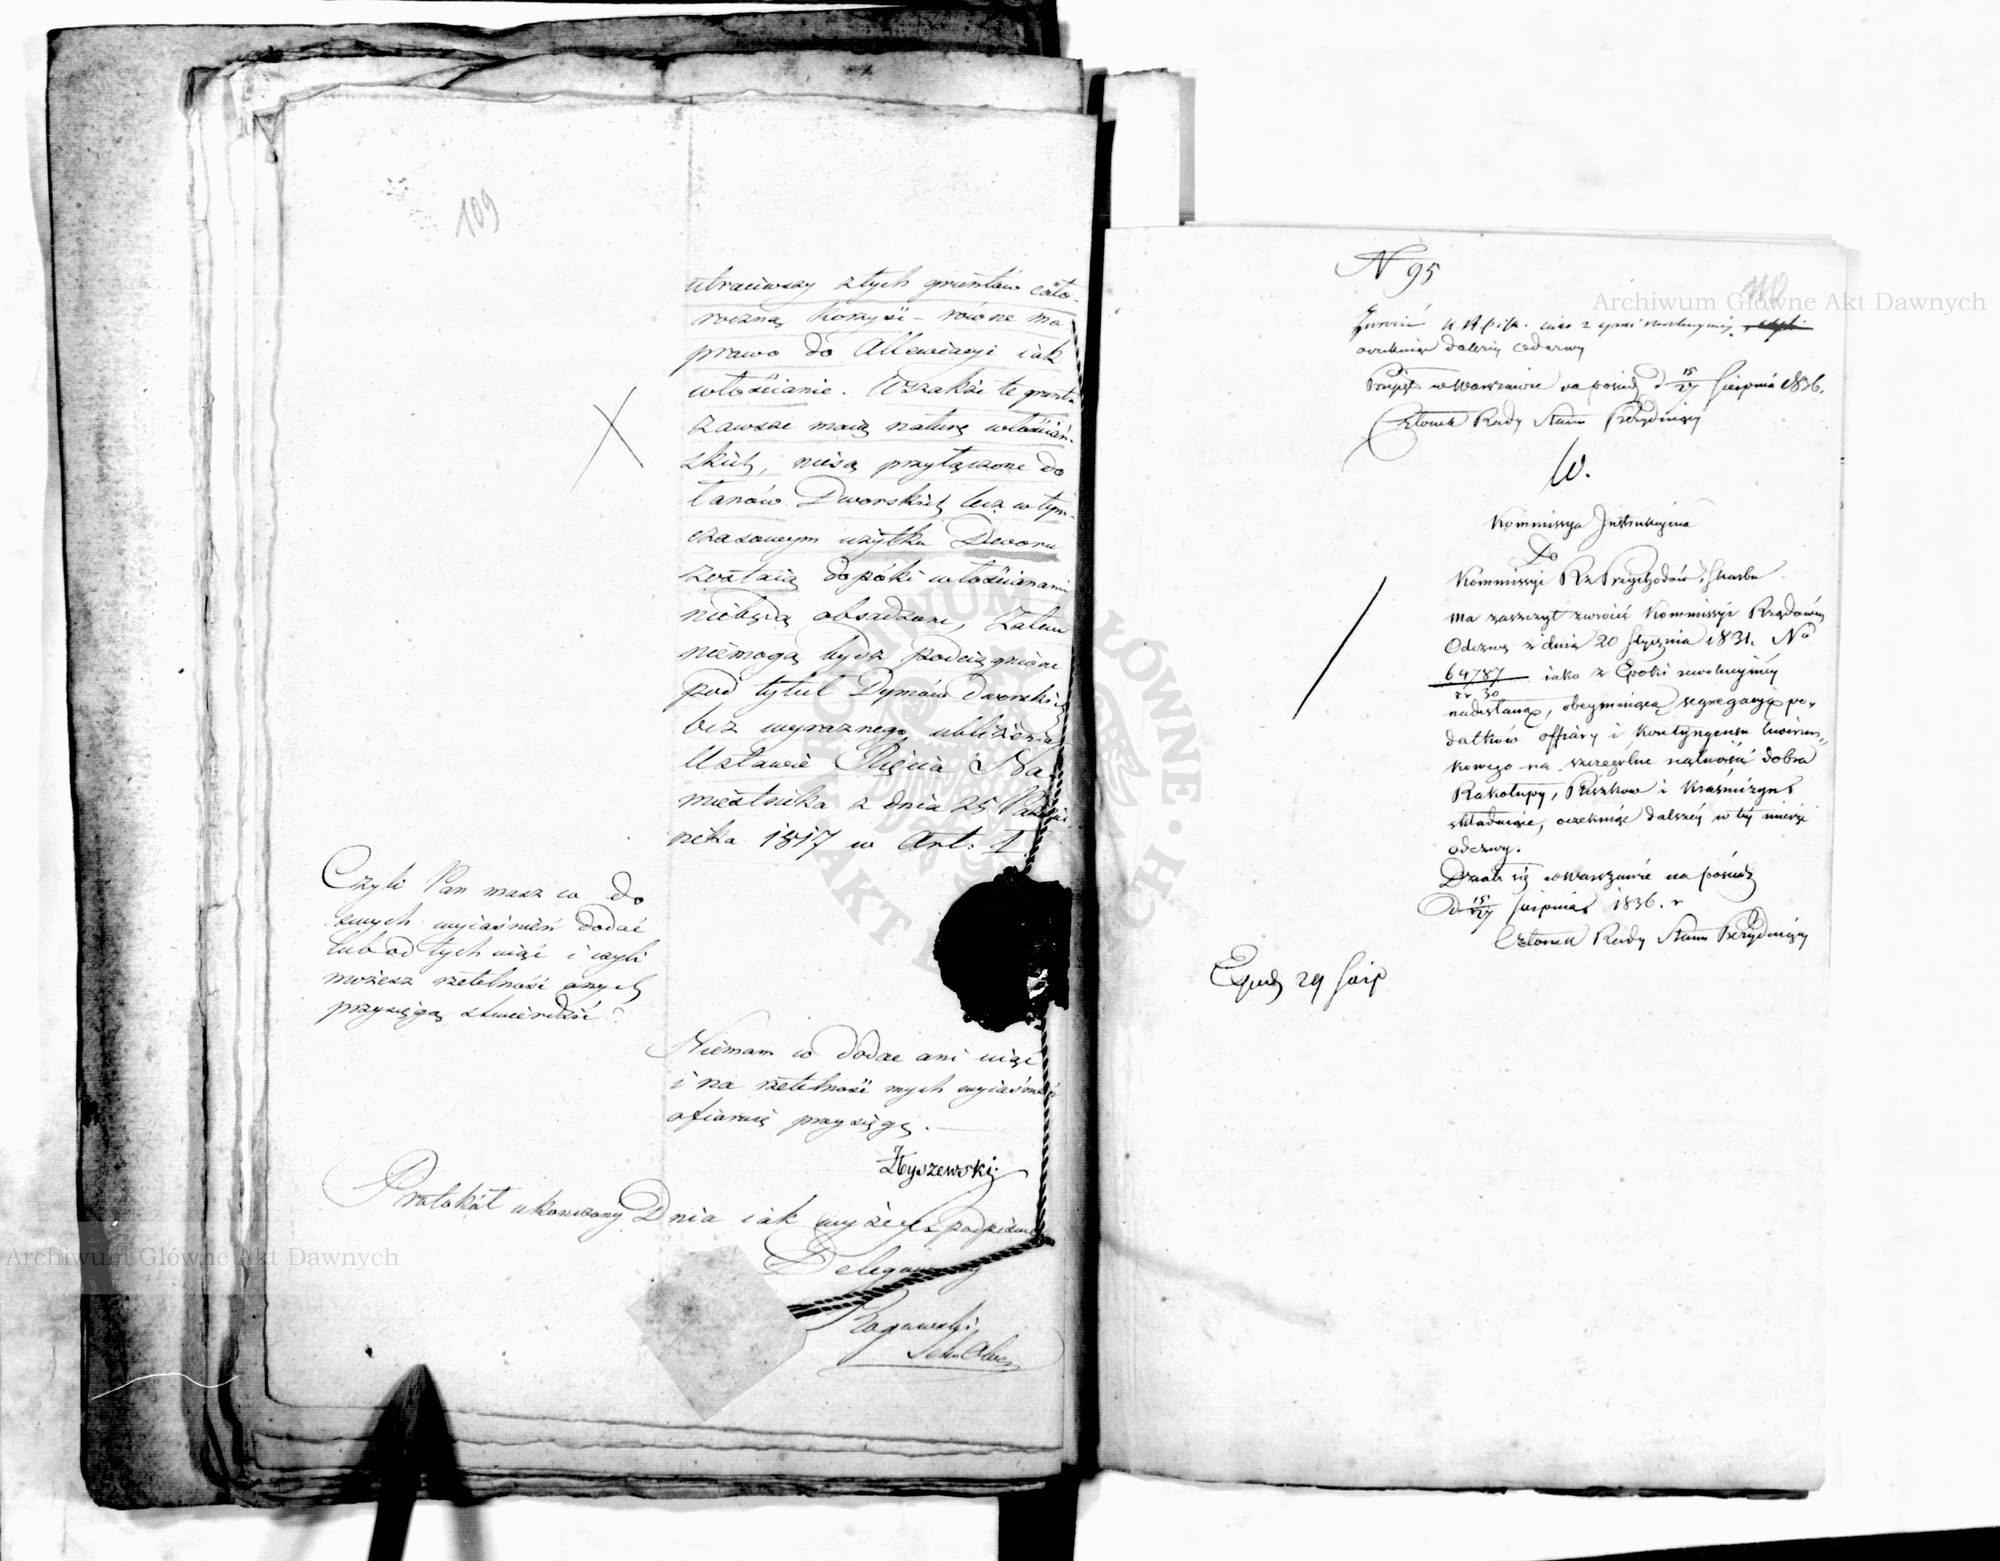 109
utraciwszy z tych gruntów cało-
roczną korzyść - równe ma
prawo do Allewiacyi iak
włościanie. Wszakże te grunta
zawsze maią naturę włościań-
skich, niesą przyłączone do
łanów Dworskich lecz w tym-
czasowym użytku Dworu
zostaią dopóki włościanami
niebędą obsadzone, zatem
niemogą bydź podciągnione
pod tytuł Dymów dworskich
bez wyraznego ubliżenia
Ustawie Xięcia Na-
miestnika z dnia 25 Paździer
nika 1817 w Art: I.
Czyli Pan masz co do
swych wyiaśnień dodać
lub od tych uiąć i czyli
możesz rzetelność onych
przysięgą stwierdzić?
Niemam co dodac ani uiąć
i na rzetelność mych wyiaśnień
ofiaruię przysięgę.
Zbyszewski
Protokół ukończony Dnia iak wyżey podpisano
Delegowany
Rogawski
N 95
110
Zwrócić
oczekuiąc dalszey odezwy
Przyięto w Warszawie na posiedz d 15/27 Sierpnia 1836.
Członek Rady Stanu Prezyduiący
W.
Kommissya Instrukcyina
Do
Kommissyi Rz Przychodów i Skarbu
ma zaszczyt zwrócić Kommissyi Rządowey
Odezwę z dnia 20 Stycznia 1831. No
64787 iako z Epoki rewolucyiney
nadesłaną, obeymuiącą segregacyą po-
datków offiary i kontyngensu liwerun-
kowego na szczególne całości dobra
Rakołupy, Pliszków i Kraśniczyn
składaiące, oczekuiąc dalszéy w téy mierze
odezwy.
Działo się w Warszawie na posiedz
D 15/27 Sierpnia 1836. r
Członek Rady Stanu Prezyduiący
Exped 29 Sierp
Archiwum Główne Akt Dawnych
Archiwum Główne Akt Dawnych
ARCHIWUM GŁÓWNE AKT DAWNYCH